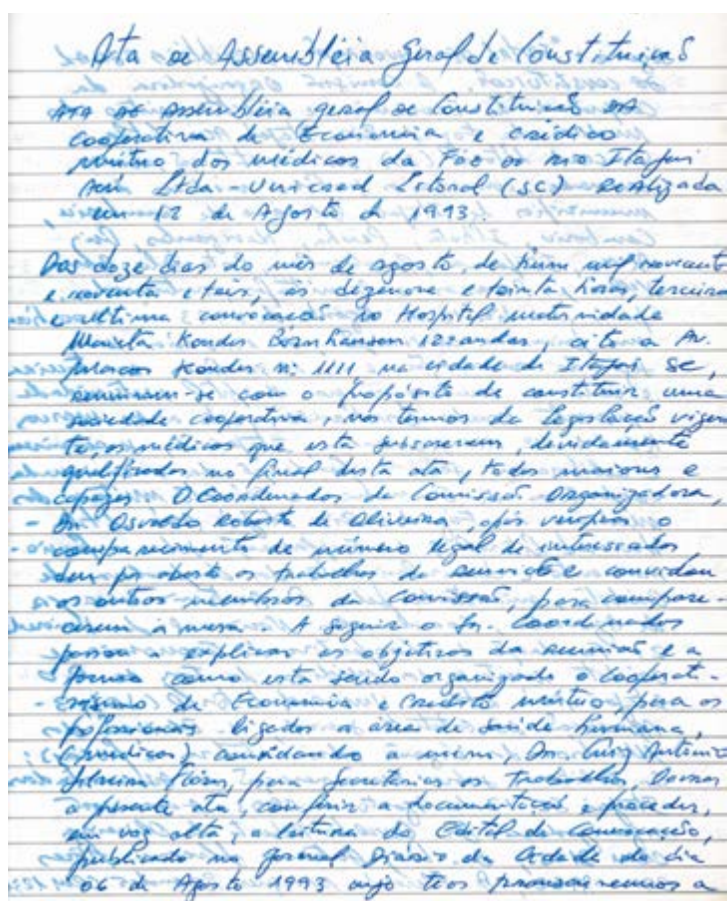 Ata de Assembléia Geral de Constituicaõ
ATA DE Assembléia geral de Constituicaõ DA
Cooperativa de Economia e crédito
mútuo dos médicos da Foz do Rio Itajai
Açú Ltda - Unicred Litoral (SC) REALizada
em 12 de Agosto de 1993.
Aos doze dias do mês de agosto, de hum mil novecent
e noventa e três, às dezenove e trinta horas, terceira
e última convocacaõ no Hospital maternidade
Marieta Konder Bornhausen 12º andar, cito a Av.
marcos Konder nº 1111 na cidade de Itajai SC,
reuniram-se com o propósito de constituir uma
sociedade cooperativa, nos termos da legislacaõ vigen
te, os médicos que esta subscrevem, devidamente
qualificados no final desta ata, todos maiores e
capazes. O Coordenador da Comissaõ Organizadora,
- Dr. Osvaldo Roberto de Oliveira, após verificar o
comparecimento de número legal de interessados
deu por aberto os trabalhos da e convidou
os outros membros da Comissaõ, para compare-
cerem à mesa. A seguir o Sr. Coordenador
passou a explicar os objetivos da reuniaõ e a
forma como esta sendo organizado o Cooperati-
-vismo de Economia e Credito mútuo, para os
profissionais ligados a área de saúde humana,
(médicos) convidando à mim, Dr. Luiz Antônio
Silveira para Secretariar os Trabalhos,
a presente ata, conferir a documentaçaõ e proceder,
em voz alta, a leitura do Edital de Convocação,
publicado no jornal Diário da Cidade do dia
06 de Agosto 1993 cujo teor a